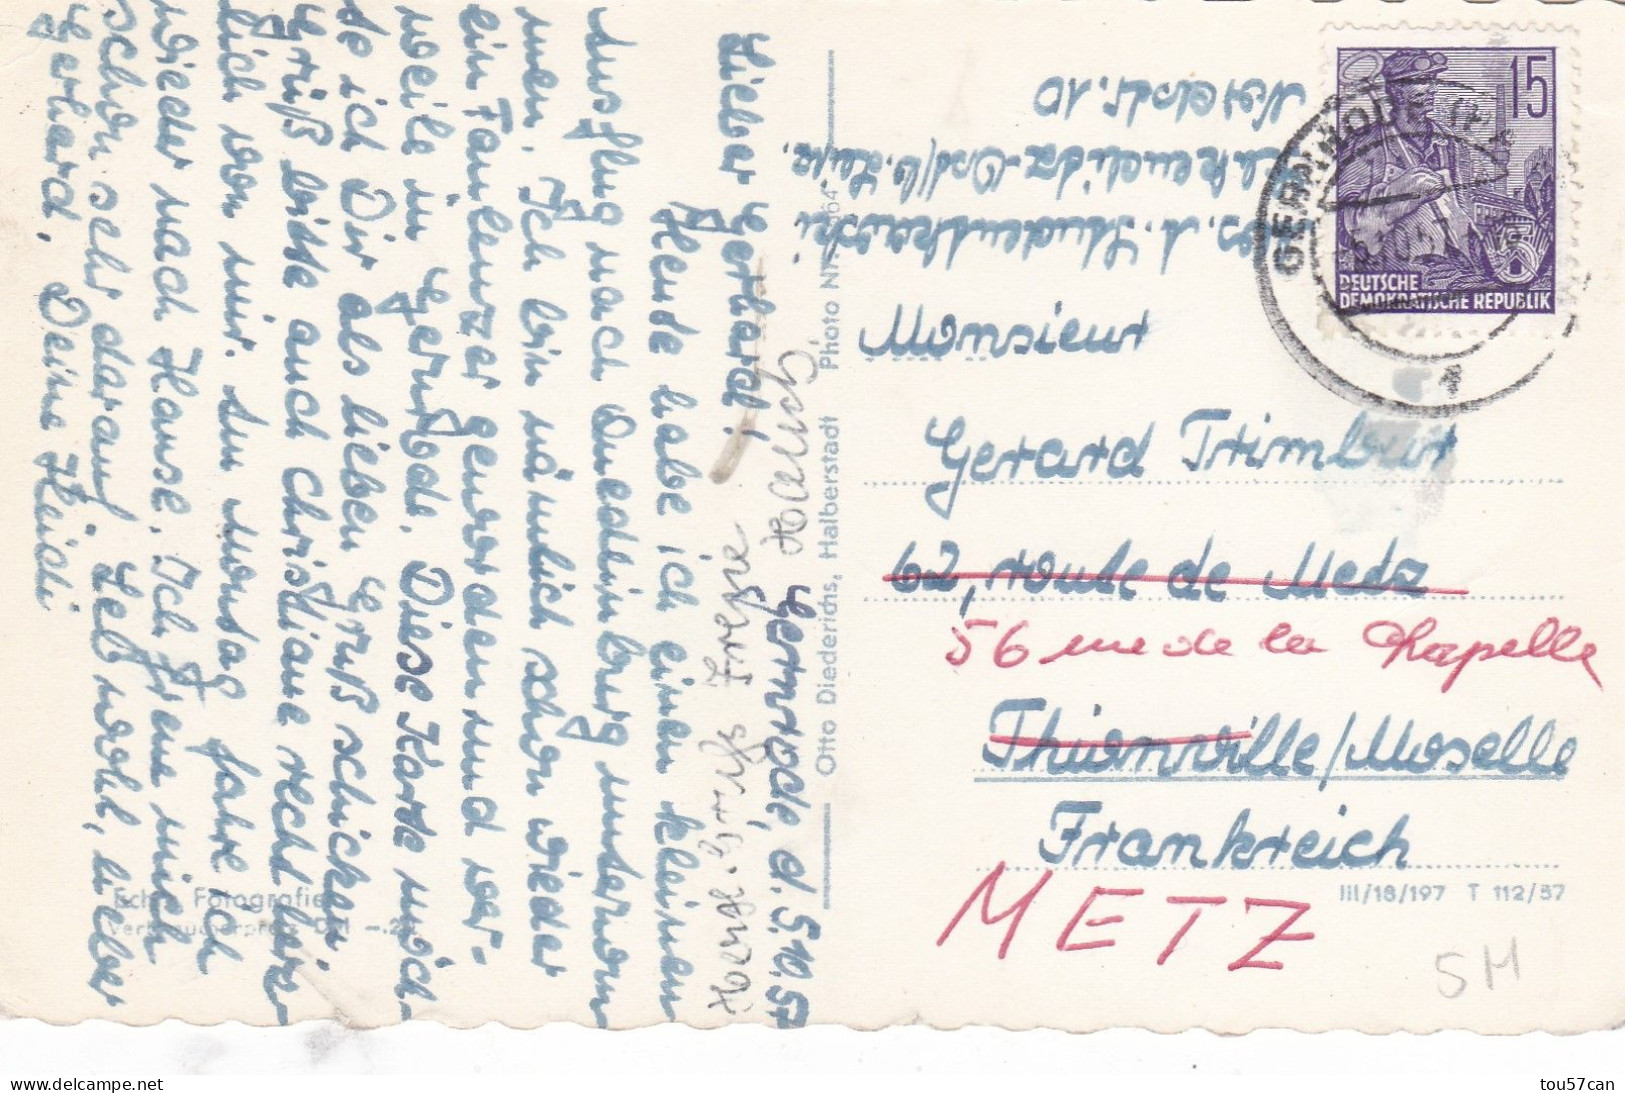 Gernrode, d. 5.10.57
Lieber Gerhard!
Heute habe ich einen kleinen
Ausflug nach Quedlinburg unternom
men. Ich bin nämlich schon wieder
ein Faulenzer geworden und ver-
weile in Gernrode. Diese Karte möch-
te ich Dir als lieben Gruß schicken.
Grüß bitte auch Christiane recht herz-
lich von mir. Am Montag fahre ich
wieder nach Hause. Ich freue mich
schon sehr darauf. Leb wohl, lieber
Gerhard. Deine Heidi
Otto Diederichs, Halberstadt Photo Nr.
Echte Fotografie
Verbraucherpreis DM
Abs. A.
Nordstr. 10
15
DEUTSCHE
DEMOKRATISCHE REPUBLIK
GERNRODE
Monsieur
Gerard Trimbur
62, route de Metz
56 rue de la Chapelle
Thionville/Moselle
Frankreich
METZ
III/18/197 T 112/57
5M
delcampe.net
tou57can